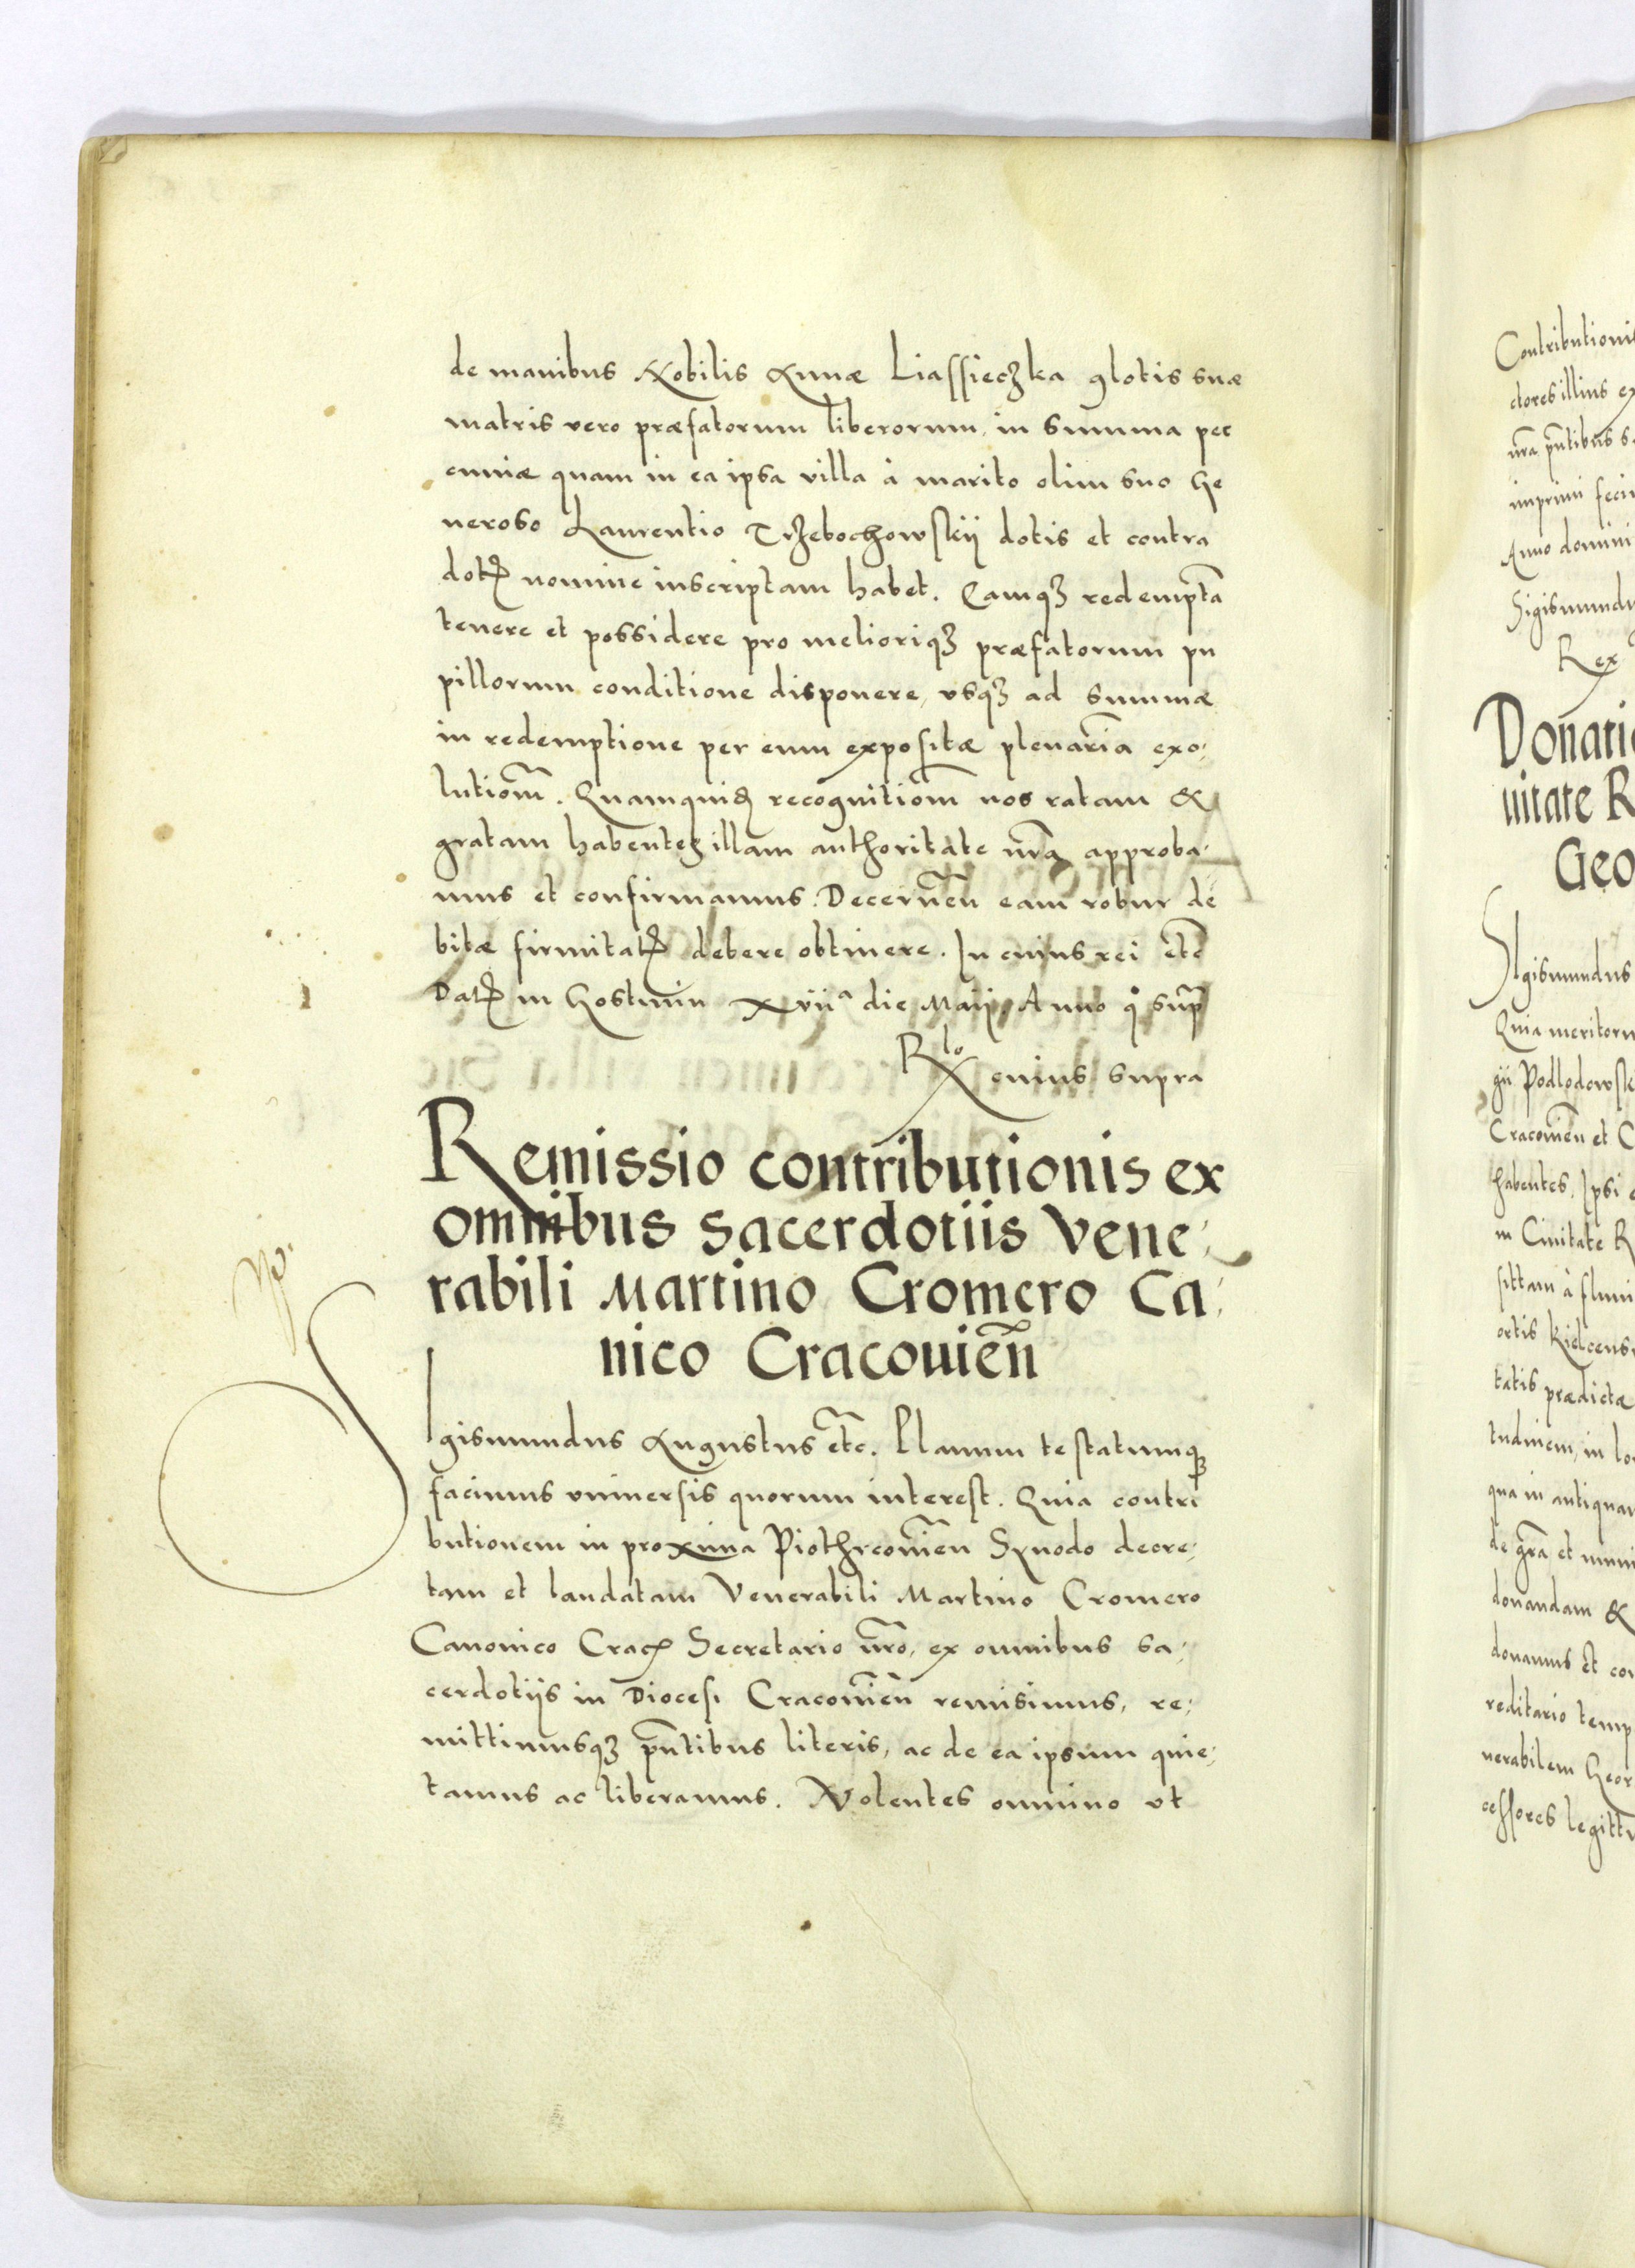 de manibus Nobilis Annæ Liassieczka glotis suæ
matris vero præfatorum liberorum, in summa pec
cuniæ quam in ea ipsa villa à marito olim suo Ge
neroso Laurentio Trzebochowskij dotis et contra
dotꝭ nomine inscriptam habet. Eamqꝫ redemptā
tenere et possidere pro melioriqꝫ præfatorum pu
pillorum conditione disponere, vsqꝫ ad summæ
in redemptione per eum expositæ plenariā exo,
lutioēm. Quamquidē recognitioēm nos ratam &
gratam habentes illam authoritate nrā approba,
mus et confirmamus. Decernēn eam robur de
bitæ firmitatꝭ debere obtinere. In cuius rei etc̄
Datꝭ in Gostinin xvijᵃ die Maij. Anno qº supᷓ
Rlō cuius supra
Remissio contributionis ex
omnibus sacerdotiis Vene,
rabili Martino Cromero Ca,
nico Cracouiēn
SIgismundus Augustus etc̄. Planum testatumqꝫ
facimus vniuersis quorum interest. Quia contri
butionem in proxima Piothrcouiēn Synodo decre,
tam et laudatam Venerabili Martino Cromero
Canonico Cracꝭ Secretario nrō, ex omnibus sa,
cerdotijs in Diocesi Cracouiēn remisimus, re,
mittimusqꝫ pn̄tibus literis, ac de ea ipsum quie,
tamus ac liberamus. Volentes omnino vt
Contributionis
ctores illius ex
nrā pn̄tibus s
imprimi feci
Anno domini
Sigismundu
Rex
Donatio
uitate R
Geo
SIgismundus
Quia meritoru
gii Podlodowsk
Cracouiēn et C
habentes, Ipsi
in Ciuitate R
sittam à flumi
ortis Kielcens
tatis prædictæ
tudinem, in lo
qua in antiquar
de grā et muni
donandam &
donamus et con
reditario temp
nerabilem Geor
cessores legittu